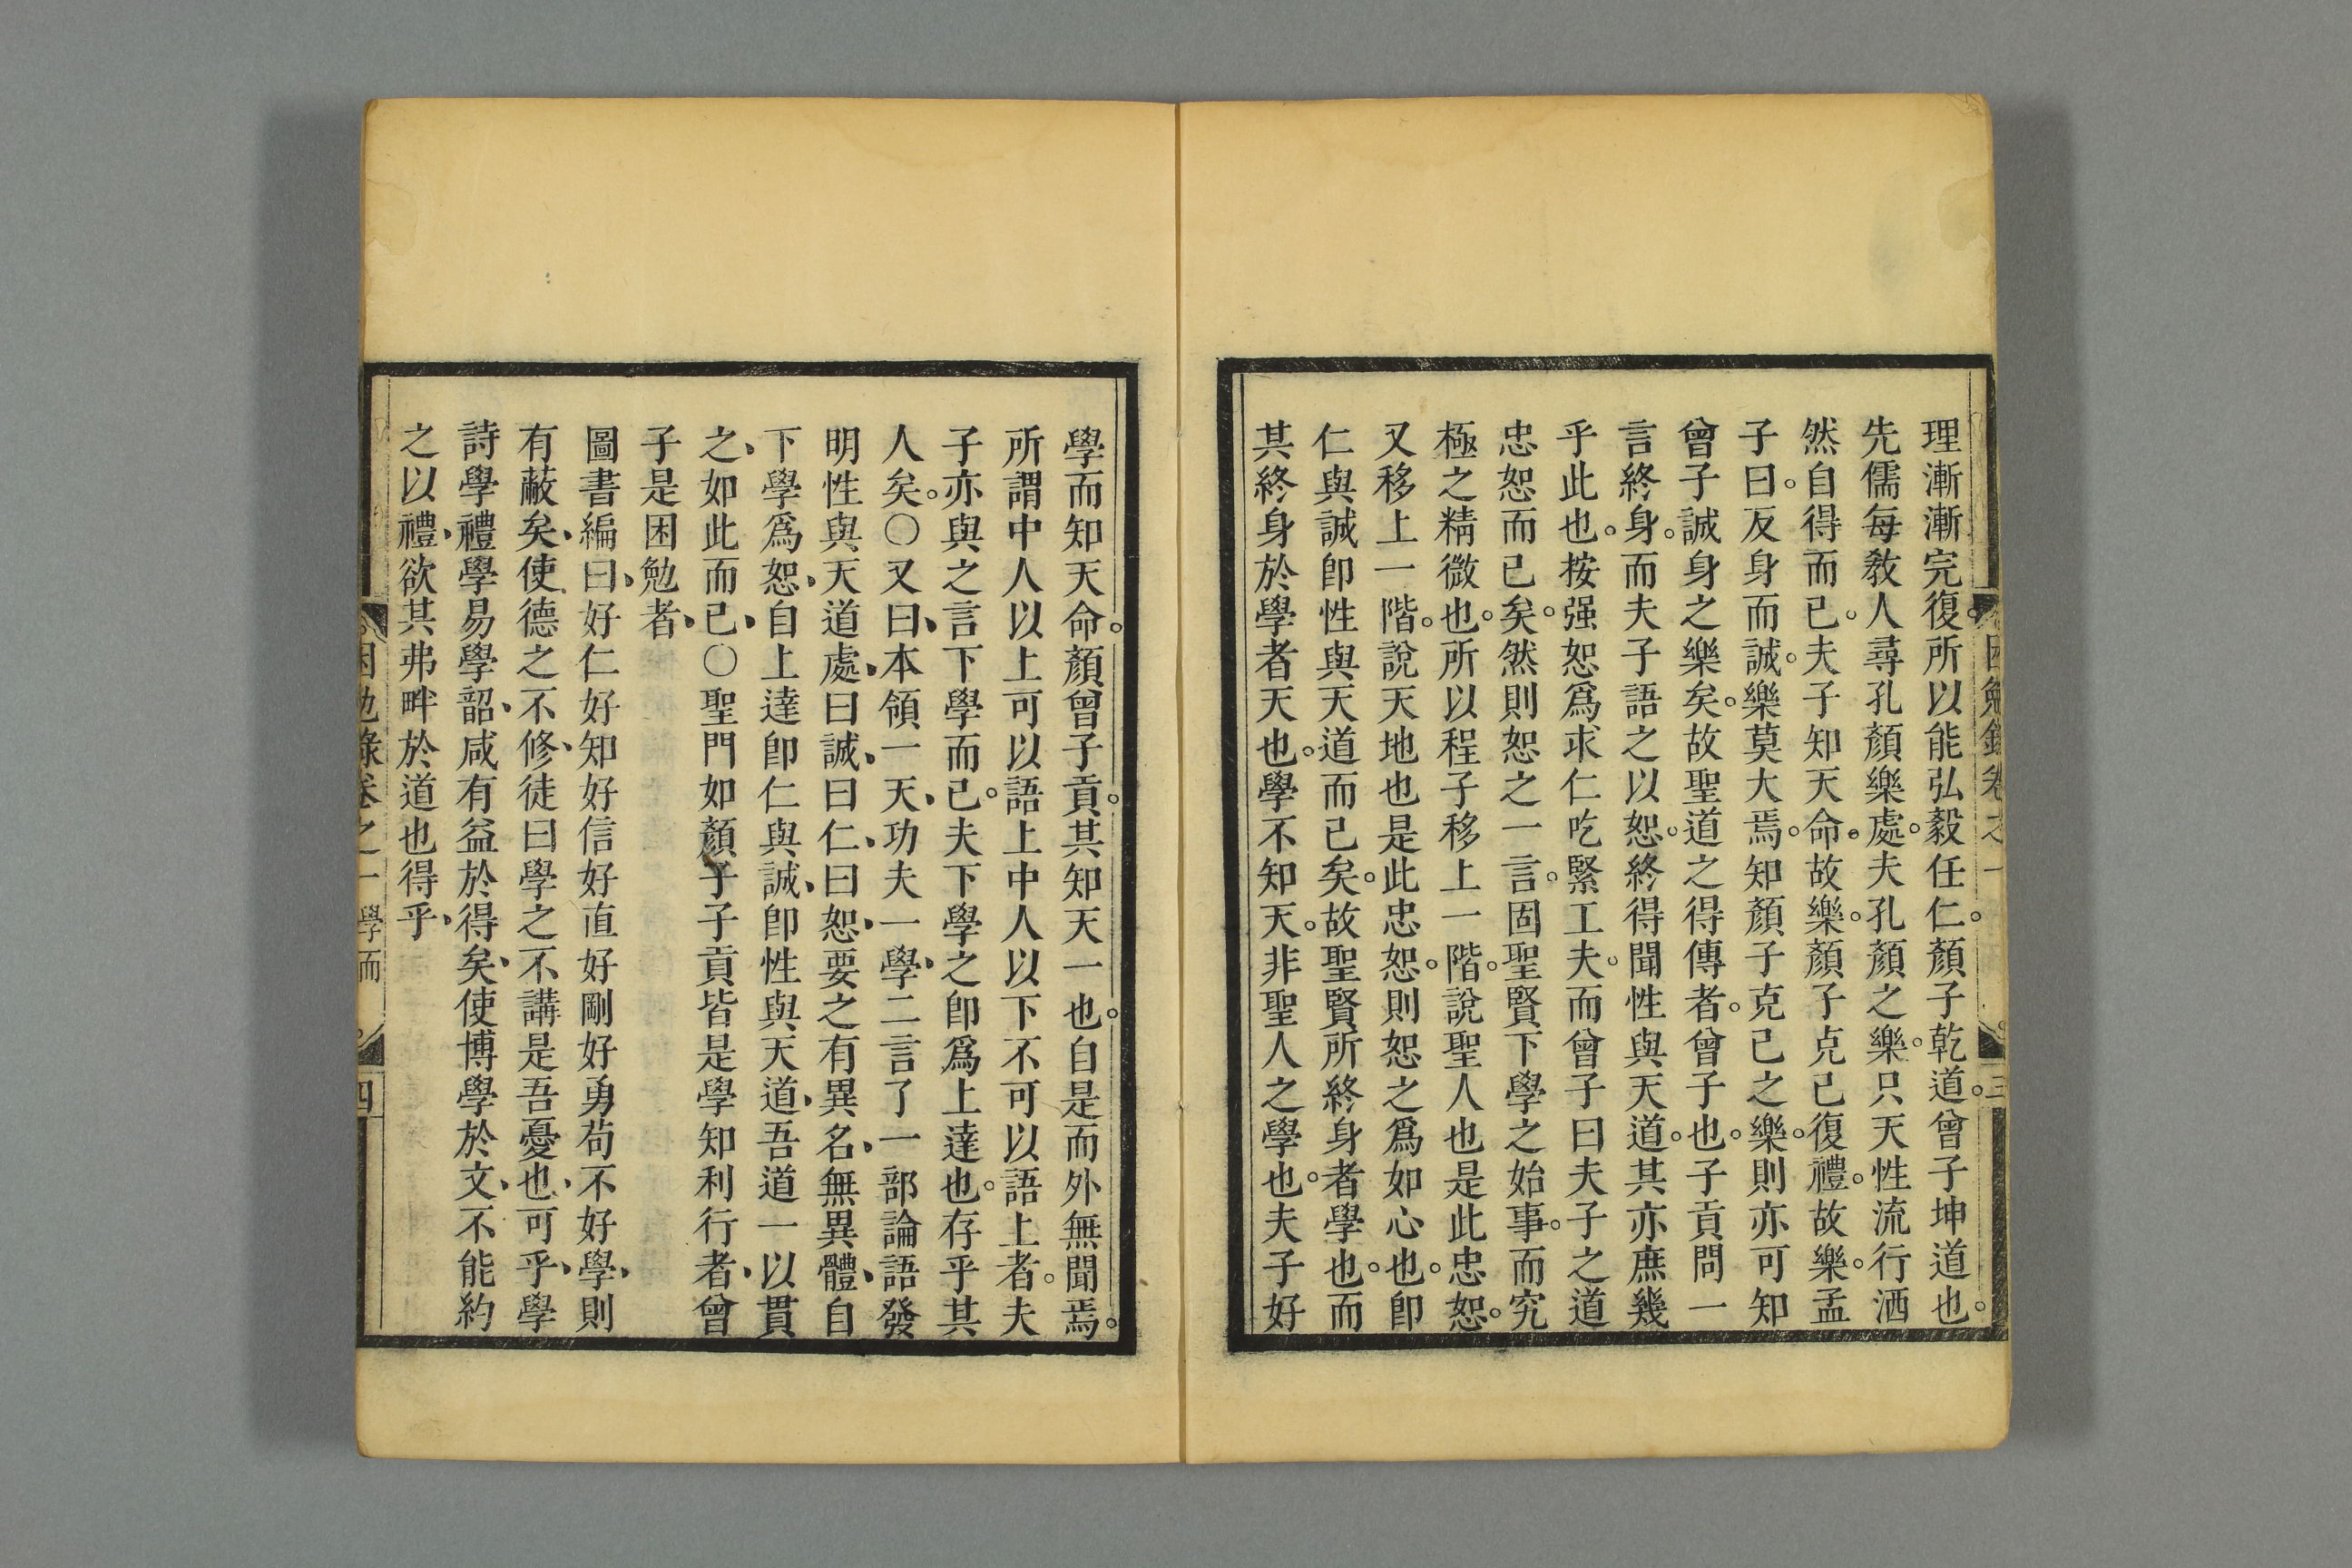 理漸漸完復。所以能弘毅任仁。顏子乾道。曾子坤道也。
先儒每教人尋孔顏樂處。夫孔顏之樂。只天性流行洒
然自得而已。夫子知天命。故樂。顏子克己復禮。故樂。孟
子曰。反身而誠。樂莫大焉。知顏子克己之樂。則亦可知
曾子誠身之樂矣。故聖道之得傳者。曾子也。子貢問一
言終身。而夫子語之以恕。終得聞性與天道。其亦庶幾
乎此也。按强恕爲求仁吃緊工夫。而曾子曰夫子之道
忠恕而已矣。然則恕之一言。固聖賢下學之始事。而究
極之精微也。所以程子移上一階。說聖人也是此忠恕。
又移上一階。說天地也是此忠恕。則恕之爲如心也。卽
仁與誠卽性與天道而已矣。故聖賢所終身者學也。而
其終身於學者天也。學不知天。非聖人之學也。夫子好
困勉錄卷之一
三
學而知天命。顏曾子貢。其知天一也。自是而外無聞焉。
所謂中人以上可以語上中人以下不可以語上者。夫
子亦與之言下學而已。夫下學之卽爲上達也。存乎其
人矣。〇又曰、本領一天、功夫一學、二言了一部論語發
明性與天道處、曰誠、曰仁、曰恕、要之有異名、無異體、自
下學爲恕、自上達卽仁與誠、卽性與天道、吾道一以貫
之、如此而已、〇聖門如顏子子貢皆是學知利行者、曾
子是困勉者、
圖書編曰、好仁好知好信好直好剛好勇苟不好學、則
有蔽矣、使德之不修、徒曰學之不講是吾憂也、可乎、學
詩學禮學易學韶、咸有益於得矣、使博學於文、不能約
之以禮、欲其弗畔於道也得乎、
困勉錄卷之一
學而
四